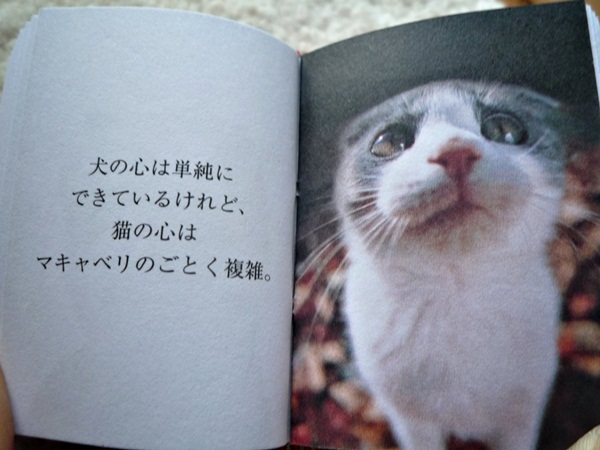 犬の心は単純に
できているけれど、
猫の心は
マキャベリのごとく複雑。